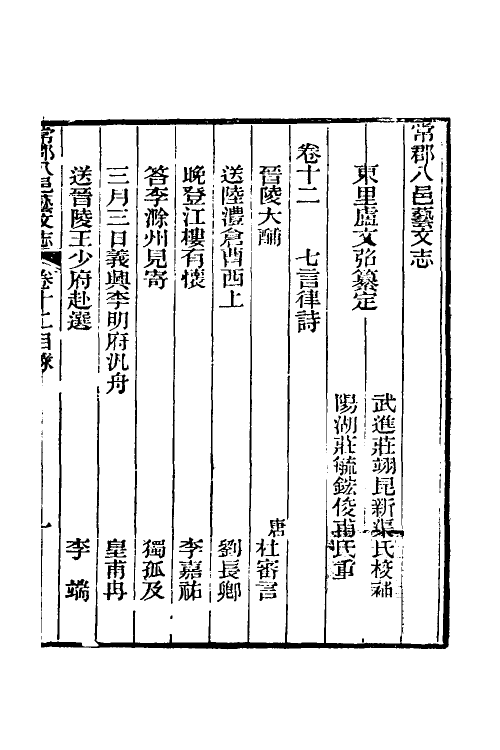 常郡八邑藝文志
武進莊翊昆新渠氏校補
東里盧文弨纂定
陽湖莊毓鋐俊甫氏重
卷十二　七言律詩
晉陵大酺　唐杜審言
送陸澧倉曹西上　劉長卿
晚登江樓有懷　李嘉祐
答李滁州見寄　獨孤及
三月三日義興李明府汎舟　皇甫冉
送晉陵王少府赴選　李端
常郡八邑藝文志　卷十二目錄　一